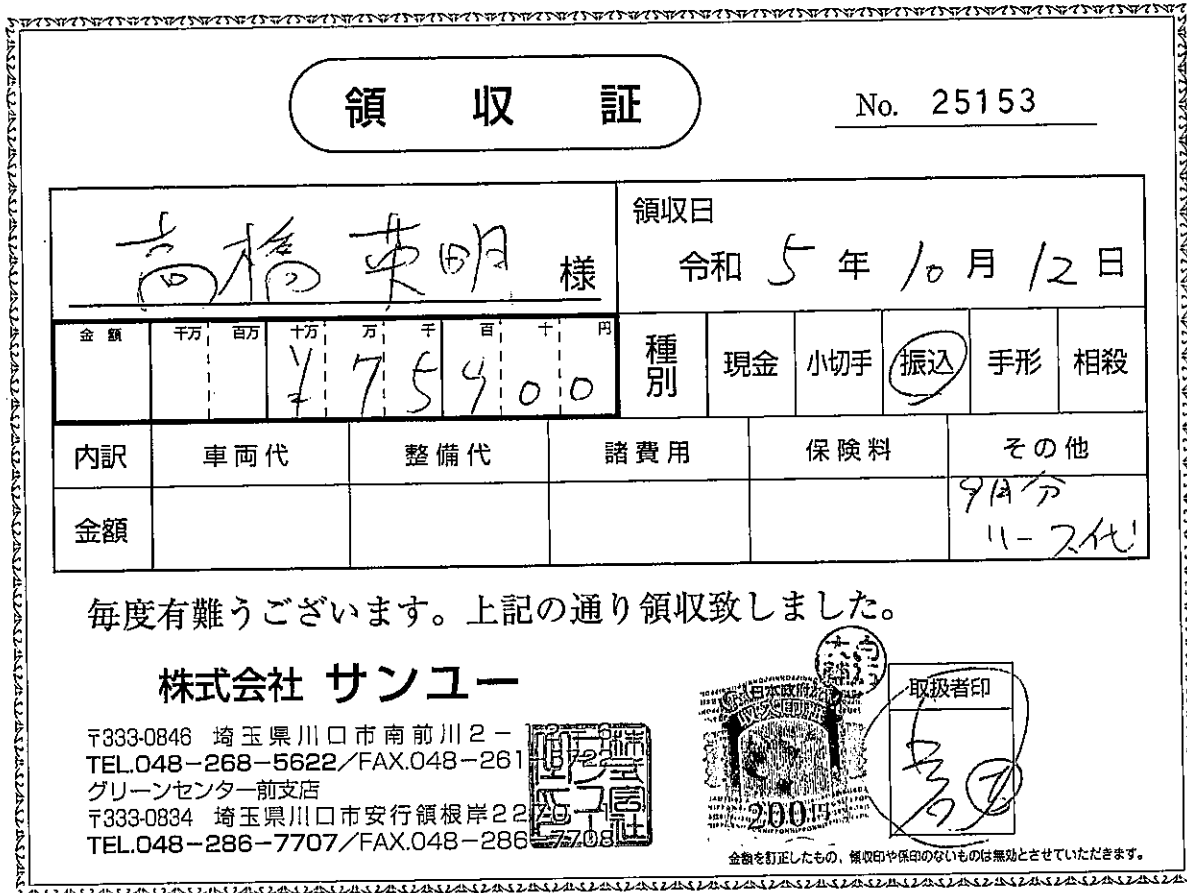 領収証
No. 25153
高橋英明 様
領収日
令和 5 年 10 月 12 日
金額 千万 百万 十万 万 千 百 十 円
¥75400
種別 現金 小切手 振込 手形 相殺
内訳 車両代 整備代 諸費用 保険料 その他
金額 9月分
リース代
毎度有難うございます。上記の通り領収致しました。
株式会社 サンユー
〒333-0846 埼玉県川口市南前川2-
TEL.048-268-5622/FAX.048-261-
グリーンセンター前支店
〒333-0834 埼玉県川口市安行領根岸22
TEL.048-286-7707/FAX.048-286-7708
株式会社サンユー
日本政府
収入印紙
200円
取扱者印
金額を訂正したもの、領収印や係印のないものは無効とさせていただきます。